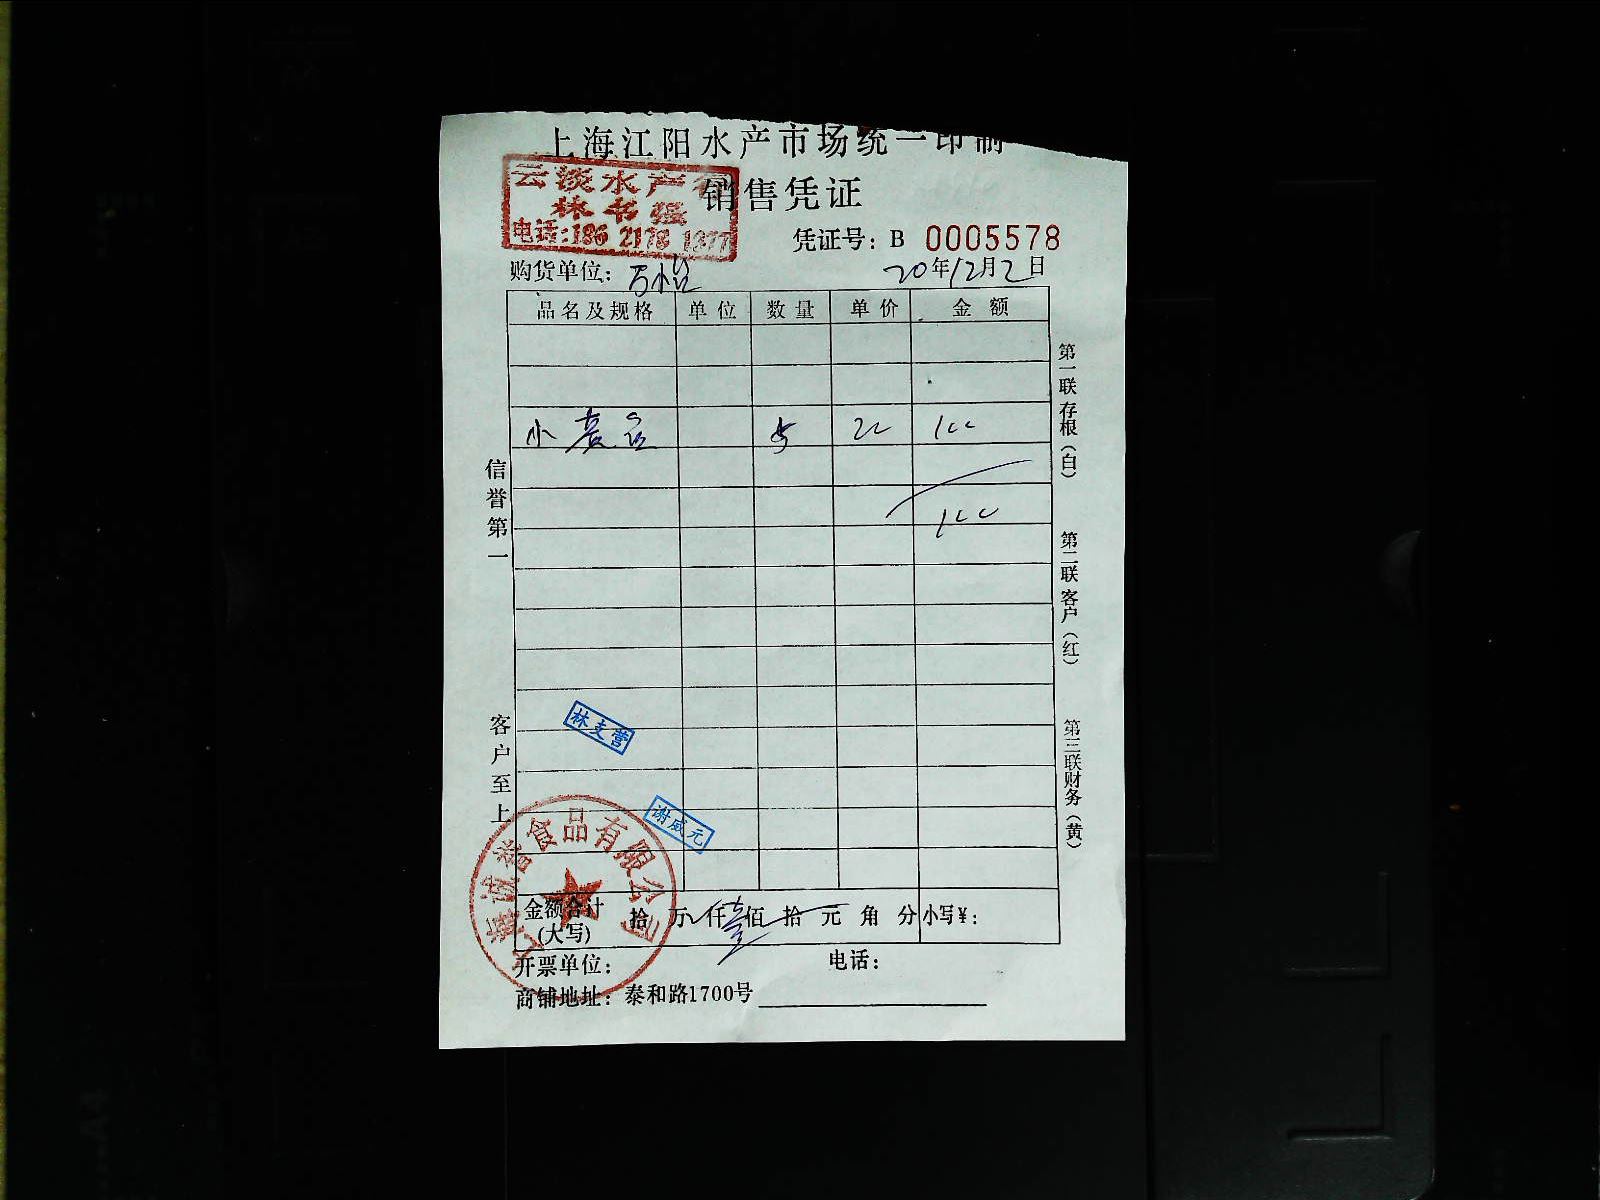 上海江阳水产市场统一印制
云淡水产行
林书强
电话:186 2178 1377
销售凭证
凭证号: B 0005578
购货单位: 万小
20年12月2日
品名及规格 单位 数量 单价 金额
小 5 20 100
100
信誉第一
客户至上
第一联存根(白)
第二联客户(红)
第三联财务(黄)
林支营
谢威元
上海诚誉食品有限公司
金额合计(大写) 拾 万 仟 壹 佰 拾 元 角 分 小写¥:
开票单位: 电话:
商铺地址: 泰和路1700号